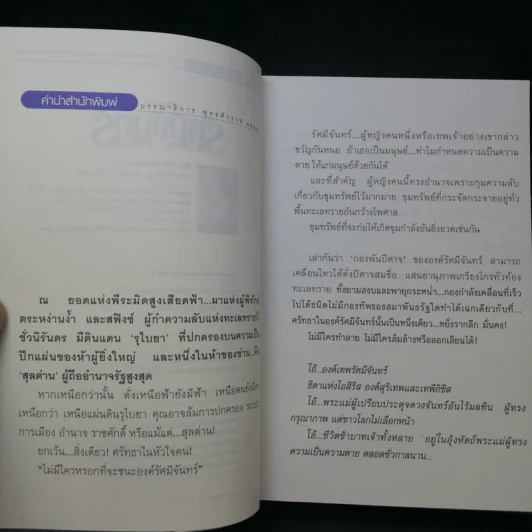 คำนำสำนักพิมพ์
บรรณาธิการ
ณ ยอดแห่งพีระมิดสูงเสียดฟ้า...ผาแห่งผู้พิทักษ์
ตระหง่านง้ำ และสฟิงซ์ ผู้กำความลับแห่งทะเลทราย
ชั่วนิรันดร มีดินแดน 'รูไบยา' ที่ปกครองบนความเป็น
ปีกแผ่นของห้าผู้ยิ่งใหญ่ และหนึ่งในห้าของช่าน...คือ
'สุลต่าน' ผู้ถืออำนาจรัฐสูงสุด
หากเหนือกว่านั้น ดั่งเหนือฟ้ายังมีฟ้า เหนือคนยังมีคน
เหนือกว่า เหนือแผ่นดินรูไบยา คุณอาจล้มการปกครอง ระบอบ
การเมือง อำนาจ ราชศักดิ์ หรือแม้แต่...สุลต่าน!
ยกเว้น...สิ่งเดียว! ศรัทธาในหัวใจคน!
"ไม่มีใครหรอกที่จะชนะองค์รัศมีจันทร์"
รัศมีจันทร์...ผู้หญิงคนหนึ่งหรือเทพเจ้าอย่างเขากล่าว
ขวัญกันหนอ ถ้าเธอเป็นมนุษย์...ทำไมกำหนดความเป็นความ
ตายให้แก่มนุษย์ด้วยกันได้
และที่สำคัญ ผู้หญิงคนนี้ทรงอำนาจเพราะกุมความลับ
เกี่ยวกับขุมทรัพย์ไว้มากมาย ขุมทรัพย์ที่กระจัดกระจายอยู่ทั่ว
พื้นทะเลทรายอันกว้างไพศาล
ขุมทรัพย์ที่จะก่อให้เกิดขุมกำลังอันยิ่งยวดเช่นกัน
เล่ากันว่า 'กองพันปีศาจ' ขององค์รัศมีจันทร์ สามารถ
เคลื่อนไหวได้ดั่งปีศาจสมชื่อ แสนยานุภาพเกรียงไกรทั่วท้อง
ทะเลทราย ทั้งยามสงบและพายุกระหน่ำ...กองกำลังเคลื่อนที่เร็ว
ไปได้ชนิดไม่มีกองทัพของสมาพันธรัฐใดทำได้เฉกเดียวกับที่...
ศรัทธาในองค์รัศมีจันทร์นั้นเป็นหนึ่งเดียว...หยั่งรากลึก มั่นคง!
ไม่มีใครทำลาย ไม่มีใครล้มล้างหรือลอกเลียนได้!
โอ้...องค์เทพรัศมีจันทร์
ธิดาแห่งโอสิริส องค์สุริยเทพและเทพีอิซิส
โอ้...พระแม่ผู้เปรียบประดุจดวงจันทร์อันไร้มลทิน ผู้ทรง
กรุณาภาพ แต่ชาวโลกไม่เลือกหน้า
โอ้...ชีวิตข้าบาทเจ้าทั้งหลาย อยู่ในอุ้งหัตถ์พระแม่ผู้ทรง
ความเป็นความตาย ตลอดชั่วกาลนาน...